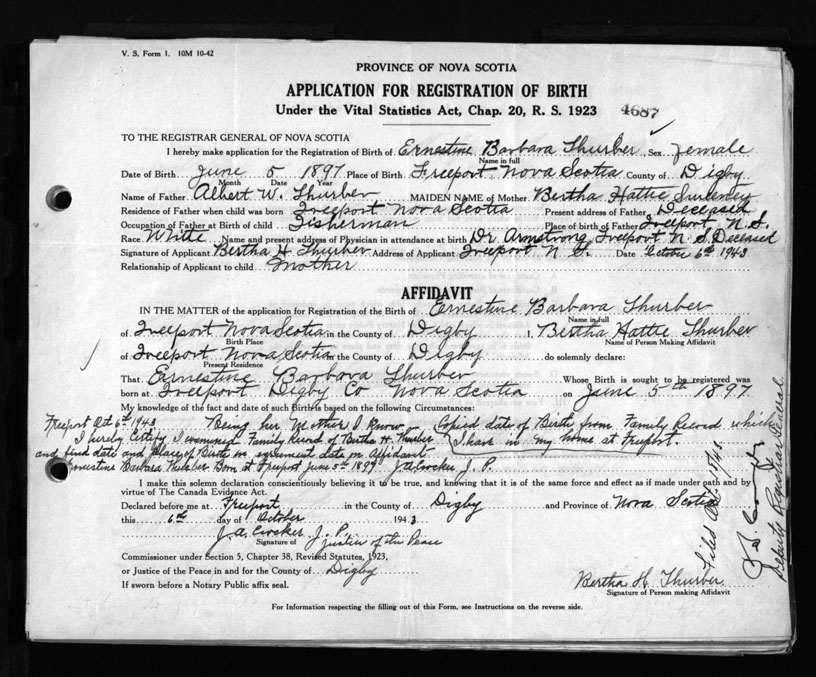 V. S. Form 1. 10M 10-42
PROVINCE OF NOVA SCOTIA
APPLICATION FOR REGISTRATION OF BIRTH
Under the Vital Statistics Act, Chap. 20, R. S. 1923 4687
TO THE REGISTRAR GENERAL OF NOVA SCOTIA
I hereby make application for the Registration of Birth of Ernestine Barbara Thurber Sex female
Name in full
Date of Birth June 5 1897 Place of Birth Freeport Nova Scotia County of Digby
Month Date Year
Name of Father Albert W. Thurber MAIDEN NAME of Mother Bertha Hattie Sweeney
Residence of Father when child was born Freeport Nova Scotia Present address of Father Deceased
Occupation of Father at Birth of child Fisherman Place of birth of Father Freeport N. S.
Race White Name and present address of Physician in attendance at birth Dr Armstrong Freeport N S Deceased
Signature of Applicant Bertha H Thurber Address of Applicant Freeport N S. Date October 6th 1943
Relationship of Applicant to child Mother
AFFIDAVIT
IN THE MATTER of the application for Registration of the Birth of Ernestine Barbara Thurber
Name in full
of Freeport Nova Scotia in the County of Digby I, Bertha Hattie Thurber
Birth Place Name of Person Making Affidavit
of Freeport Nova Scotia in the County of Digby do solemnly declare:
Present Residence
That Ernestine Barbara Thurber Whose Birth is sought to be registered was
born at Freeport Digby Co Nova Scotia on June 5th 1897
My knowledge of the fact and date of such Birth is based on the following Circumstances:
Being her Mother I know Copied date of Birth from Family Record which
I have in my home at Freeport.
Freeport Oct 6th 1943
I hereby Certify I examined Family Record of Bertha H. Thurber
and find date and Place of Birth in agreement date on Affidavit
Ernestine Barbara Thurber Born at Freeport June 5th 1897 J A Crocker, J. P.
I make this solemn declaration conscientiously believing it to be true, and knowing that it is of the same force and effect as if made under oath and by
virtue of The Canada Evidence Act.
Declared before me at Freeport in the County of Digby and Province of Nova Scotia
this 6th day of October 1943
J. A. Crocker J. P.
Signature of Justice of the Peace
Commissioner under Section 5, Chapter 38, Revised Statutes, 1923,
or Justice of the Peace in and for the County of Digby
If sworn before a Notary Public affix seal.
Bertha H Thurber
Signature of Person making Affidavit
For Information respecting the filling out of this Form, see Instructions on the reverse side.
Filed
Deputy Registrar General